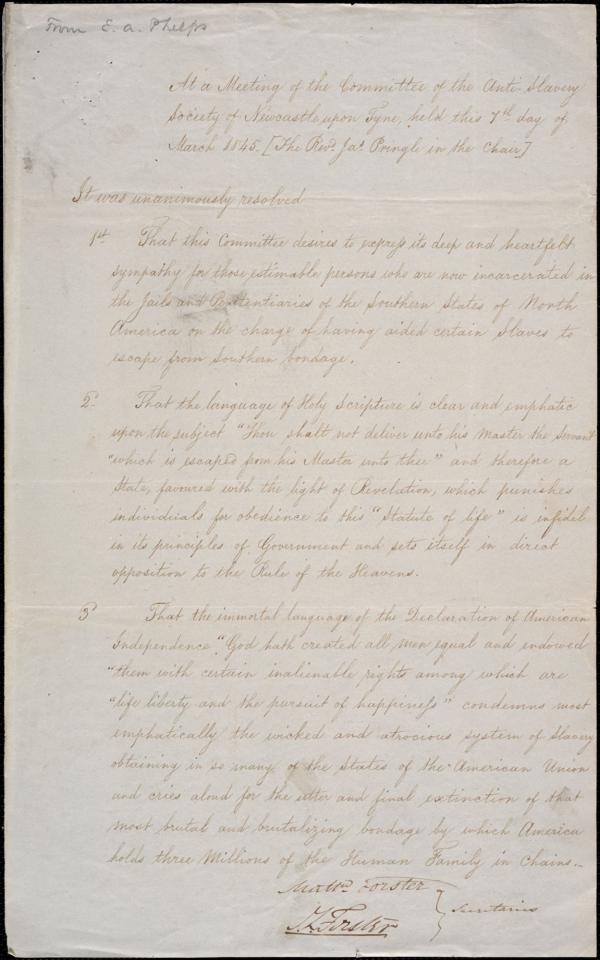 From E. A. Phelps
At a Meeting of the Committee of the Anti Slavery
Society of Newcastle upon Tyne, held this 7th day of
March 1845. [The Revd. Jas. Pringle in the Chair]
It was unanimously resolved
1st. That this Committee desires to express its deep and heartfelt
sympathy for those estimable persons who are now incarcerated in
the Jails and Penitentiaries of the Southern States of North
America on the charge of having aided certain Slaves to
escape from Southern bondage.
2d. That the language of Holy Scripture is clear and emphatic
upon the subject "Thou shalt not deliver unto his Master the Servant
"which is escaped from his Master unto thee" and therefore a
State, favoured with the light of Revelation, which punishes
individuals for obedience to this "Statute of life" is infidel
in its principles of Government and sets itself in direct
opposition to the Rule of the Heavens.
3d That the immortal language of the Declaration of American
Independence "God hath created all men equal and endowed
"them with certain inalienable rights among which are
"life liberty and the pursuit of happiness" condemns most
emphatically the wicked and atrocious system of Slavery
obtaining in so many of the States of the American Union
and cries aloud for the utter and final extinction of that
most brutal and brutalizing bondage by which America
holds three Millions of the Human Family in Chains.
Forster
Secretaries
Forster